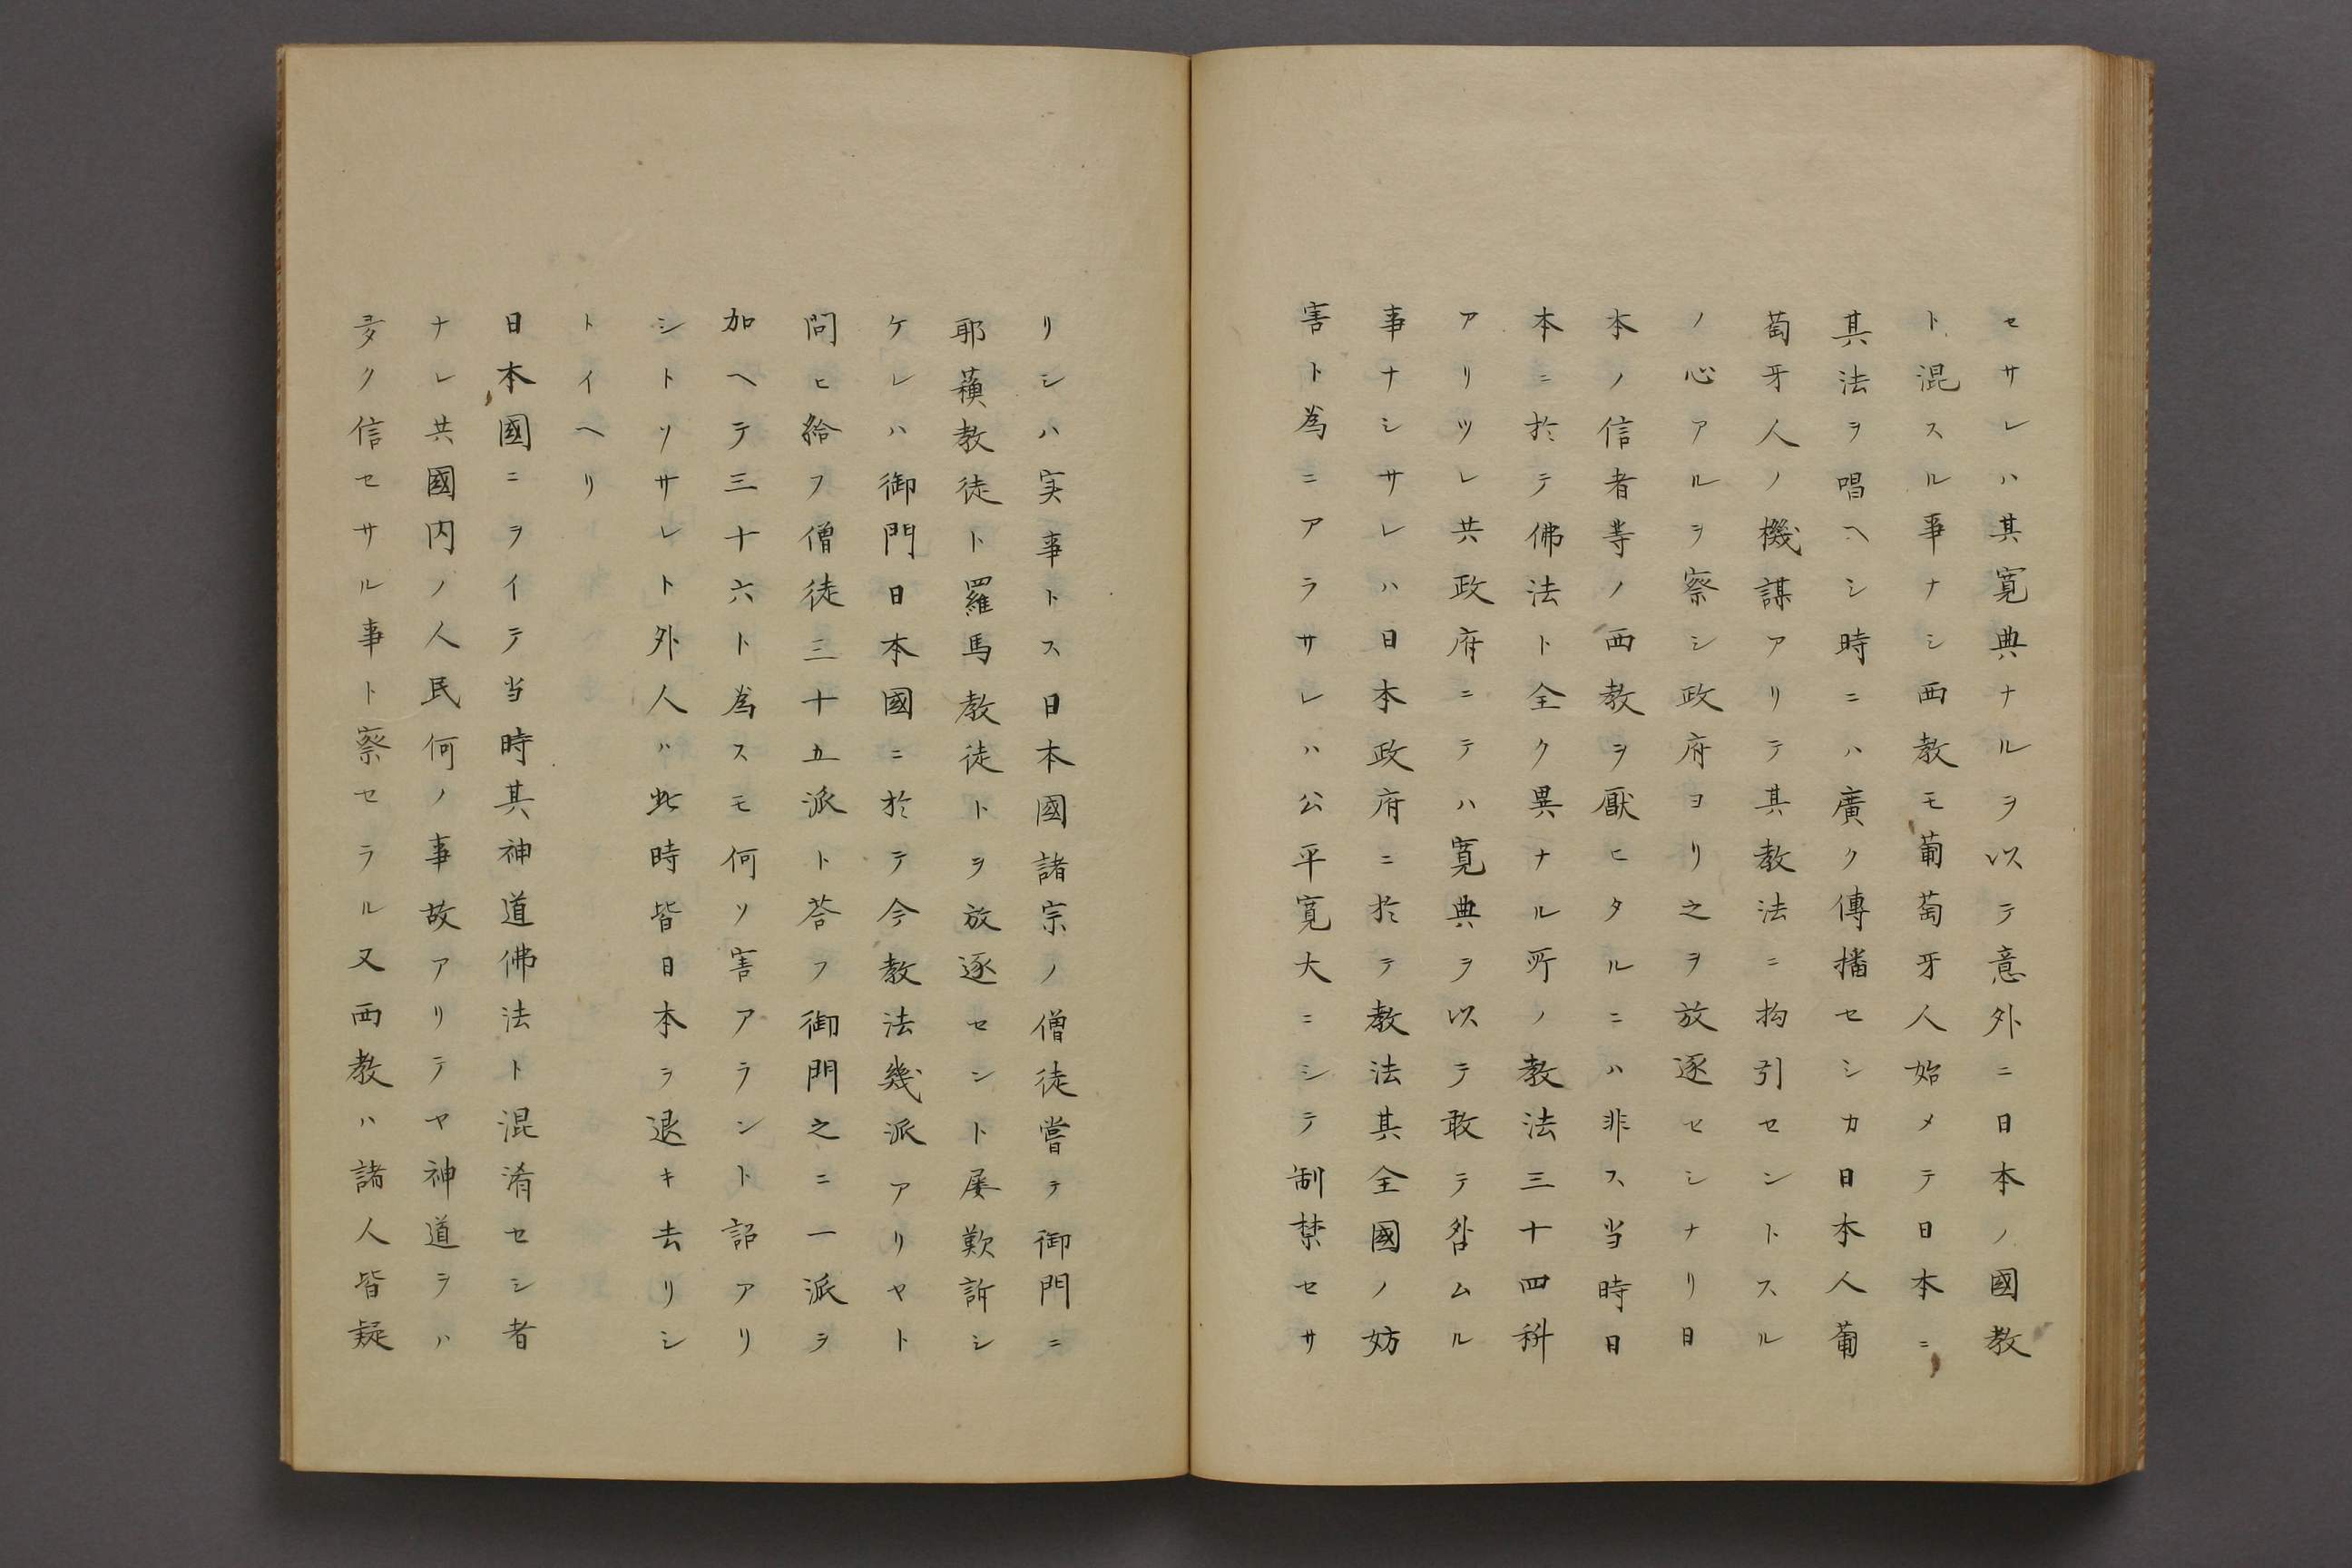 セサレハ其寛典ナルヲ以テ意外ニ日本ノ國教
ト混スル事ナシ西教モ葡萄牙人始メテ日本ニ
其法ヲ唱ヘシ時ニハ廣ク傳播セシカ日本人葡
萄牙人ノ機謀アリテ其教法ニ拘引セントスル
ノ心アルヲ察シ政府ヨリ之ヲ放逐セシナリ日
本ノ信者等ノ西教ヲ厭ヒタルニハ非ス当時日
本ニ於テ佛法ト全ク異ナル所ノ教法三十四科
アリツレ共政府ニテハ寛典ヲ以テ敢テ咎ムル
事ナシサレハ日本政府ニ於テ教法其全國ノ妨
害ト為ニアラサレハ公平寛大ニシテ制禁セサ
リシハ実事トス日本國諸宗ノ僧徒嘗テ御門ニ
耶蘓教徒ト羅馬教徒トヲ放逐セント屡歎訴シ
ケレハ御門日本國ニ於テ今教法幾派アリヤト
問ヒ給フ僧徒三十五派ト荅フ御門之ニ一派ヲ
加ヘテ三十六ト為スモ何ソ害アラント詔アリ
シトソサレト外人ハ此時皆日本ヲ退キ去リシ
トイヘリ
日本國ニヲイテ当時其神道佛法ト混淆セシ者
ナレ共國内ノ人民何ノ事故アリテヤ神道ヲハ
多ク信セサル事ト察セラル又西教ハ諸人皆疑